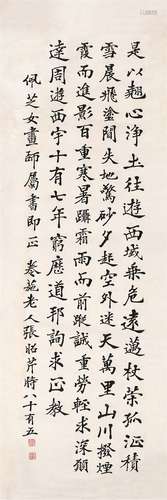 是以翹心淨土往遊西域乘危遠邁杖策孤征積
雪晨飛塗閒失地驚砂夕起空外迷天萬里山川撥煙
霞而進影百重寒暑躡霜雨而前蹤誠重勞輕求深願
達周遊西宇十有七年窮歷道邦詢求正教
佩芝女畫師屬書即正 卷施老人張昭芹時八十有五